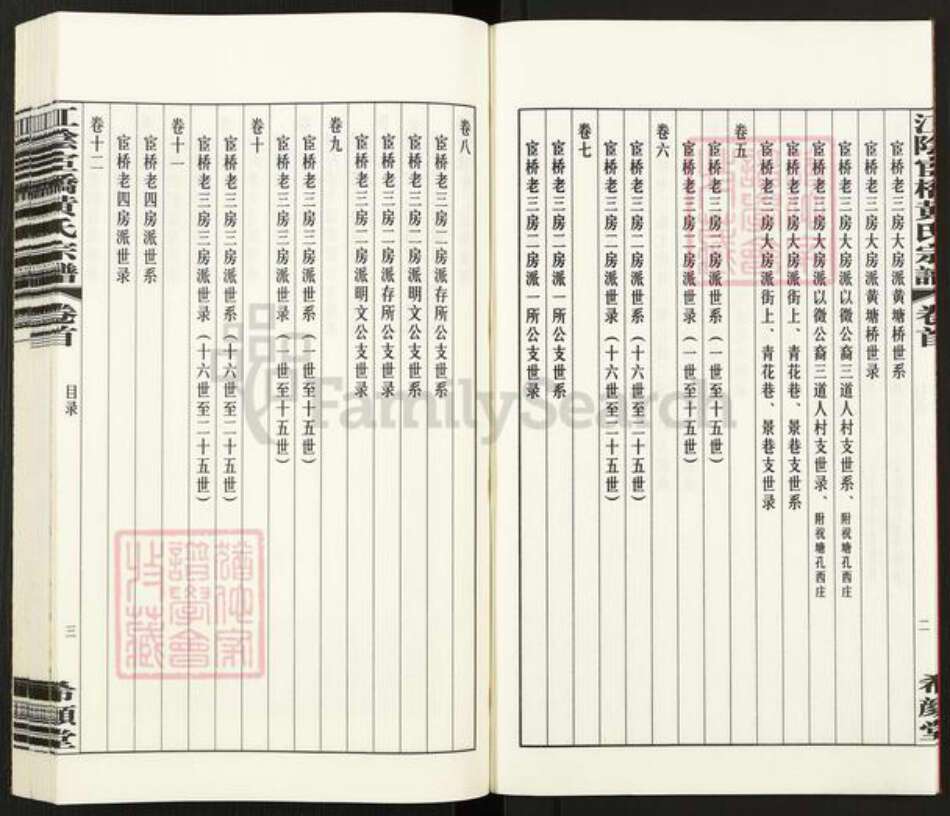 江陰官橋黄氏宗譜
卷首
二
希顔堂
宦桥老三房大房派黄塘桥世系
宦桥老三房大房派黄塘桥世录
宦桥老三房大房派以微公裔三道人村支世系、附祝塘孔西庄
宦桥老三房大房派以微公裔三道人村支世录、附祝塘孔西庄
宦桥老三房大房派街上、青花巷、景巷支世系
宦桥老三房大房派街上、青花巷、景巷支世录
卷五
宦桥老三房二房派世系（一世至十五世）
宦桥老三房二房派世录（一世至十五世）
卷六
宦桥老三房二房派世系（十六世至二十五世）
宦桥老三房二房派世录（十六世至二十五世）
卷七
宦桥老三房二房派一所公支世系
宦桥老三房二房派一所公支世录
卷八
宦桥老三房二房派存所公支世系
宦桥老三房二房派明文公支世系
宦桥老三房二房派存所公支世录
宦桥老三房二房派明文公支世录
卷九
宦桥老三房三房派世系（一世至十五世）
宦桥老三房三房派世录（一世至十五世）
卷十
宦桥老三房三房派世系（十六世至二十五世）
宦桥老三房三房派世录（十六世至二十五世）
卷十一
宦桥老四房派世系
宦桥老四房派世录
卷十二
江陰官橋黄氏宗譜
卷首
目录
三
希顔堂
FamilySearch
譜學會
收藏